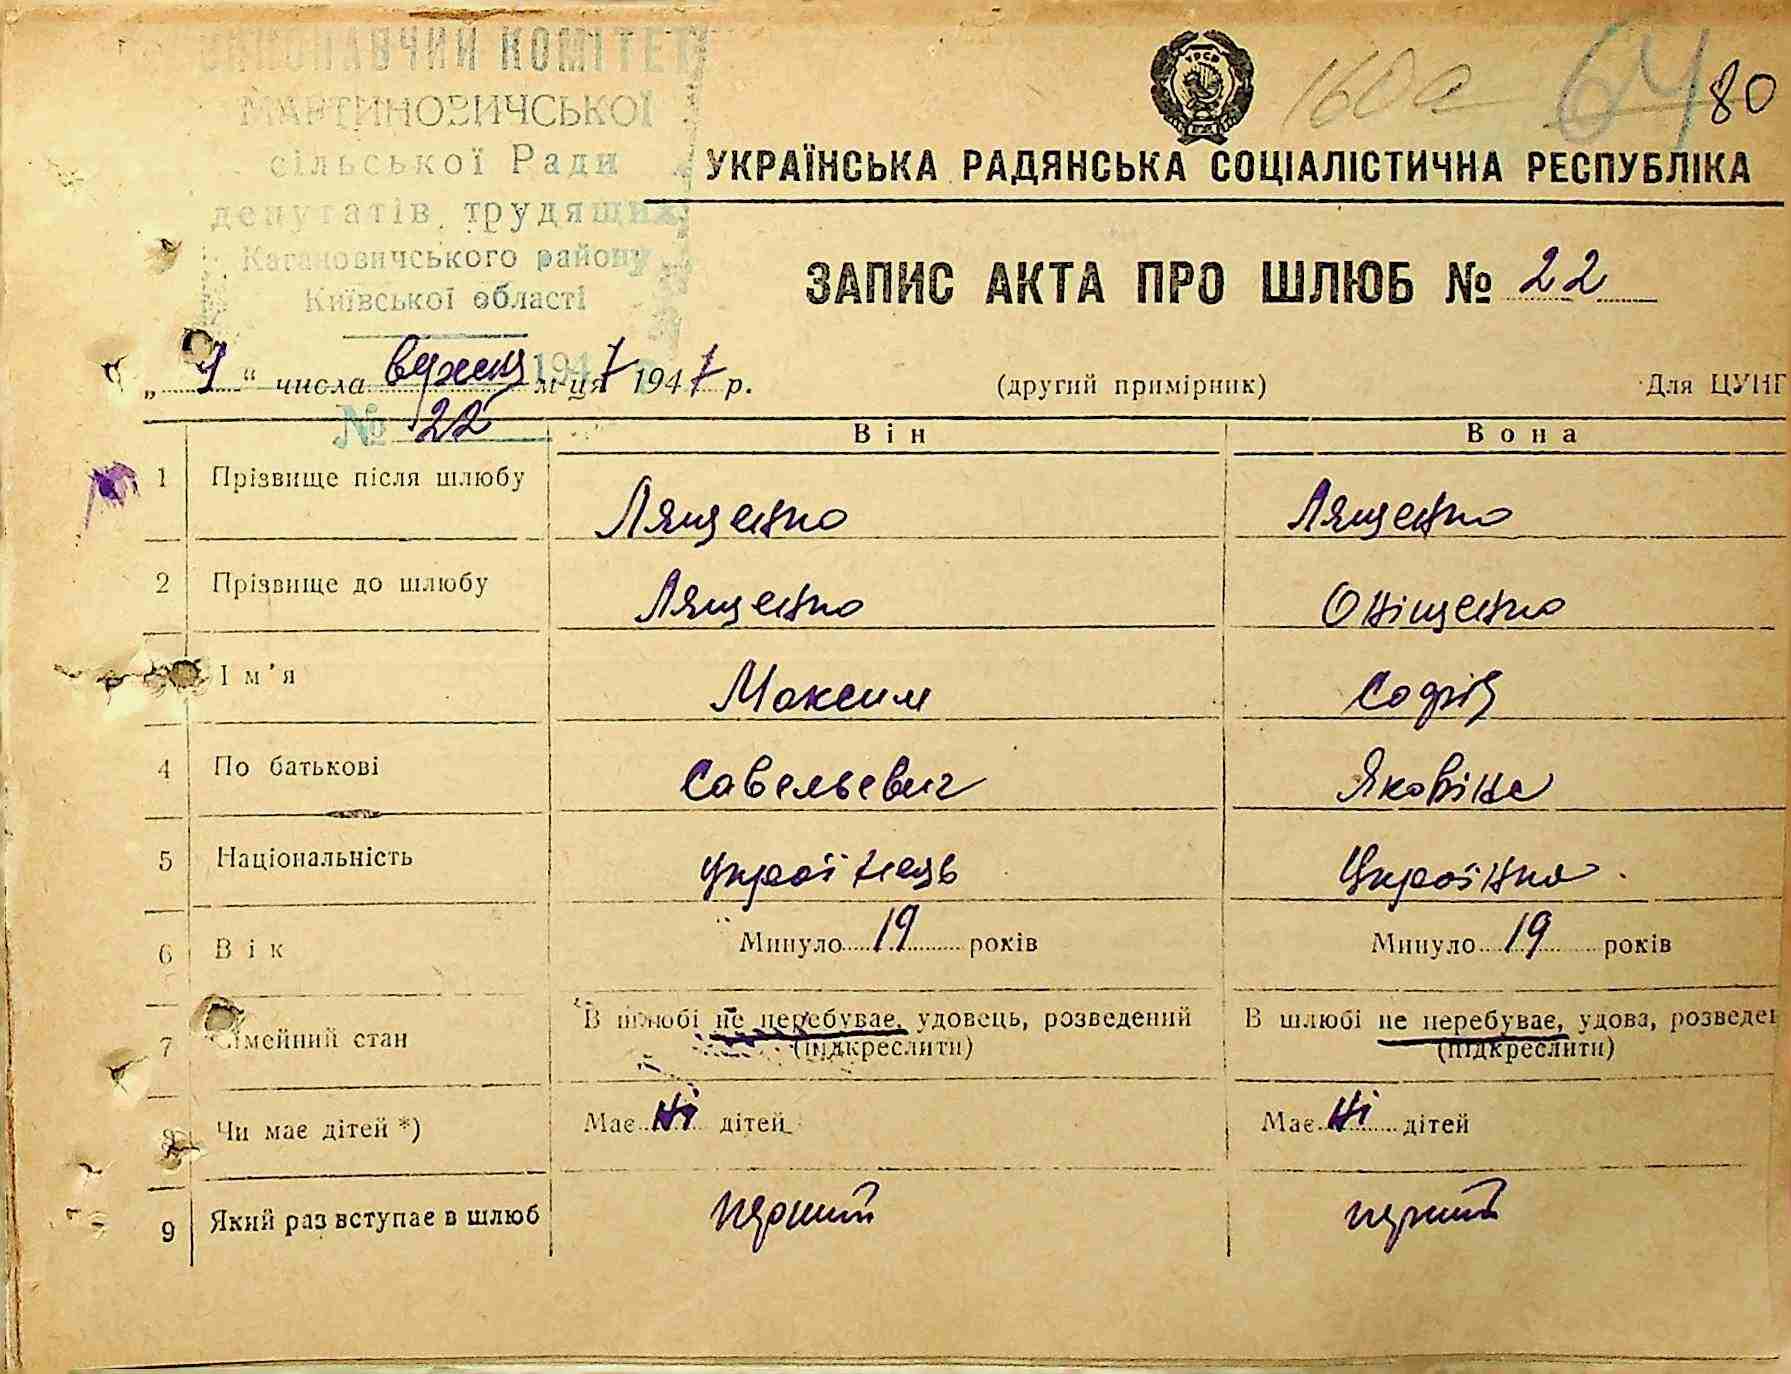 ВИКОНАВЧИЙ КОМІТЕТ
МАРТИНОВИЧСЬКОЇ
сільської Ради
депутатів трудящих
Кагановичського району
Київської області
УРСР
160а 64 80
УКРАЇНСЬКА РАДЯНСЬКА СОЦІАЛІСТИЧНА РЕСПУБЛІКА
ЗАПИС АКТА ПРО ШЛЮБ № 22
„ 9 “ числа вересня м-ця 1947 р.
194 7
№ 22
(другий примірник)
Для ЦУНГ
Він Вона
1 Прізвище після шлюбу Лященко Лященко
2 Прізвище до шлюбу Лященко Оніщенко
Ім’я Максим Софія
4 По батькові Савельевич Яковівна
5 Національність Українець Українка
6 Вік Минуло 19 років Минуло 19 років
7 Сімейний стан В шлюбі не перебуває, удовець, розведений В шлюбі не перебуває, удова, розведе
(підкреслити) (підкреслити)
8 Чи має дітей *) Має Ні дітей Має Ні дітей
9 Який раз вступає в шлюб перший перший